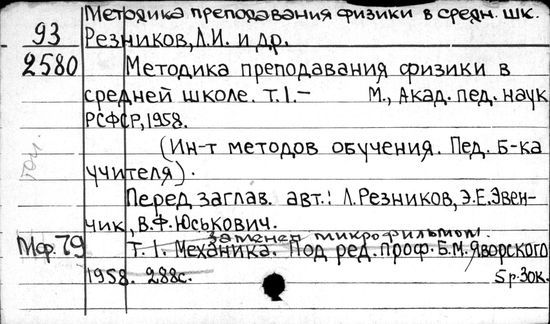 Методика преподавания физики в средн. шк.
93 Резников, Л.И. и др.
2580 Методика преподавания физики в
средней школе. Т.1.– М., Акад. пед. наук
РСФСР, 1958.
(Ин-т методов обучения. Пед. Б-ка
учителя).
Перед заглав. авт.: Л.Резников, Э.Е.Эвен-
чик, В.Ф. Юськович.
заменен микрофильмом.
Мф.79 Т.1. Механика. Под ред. проф. Б.М. Яворского
1958. 288с. 5р.30к.